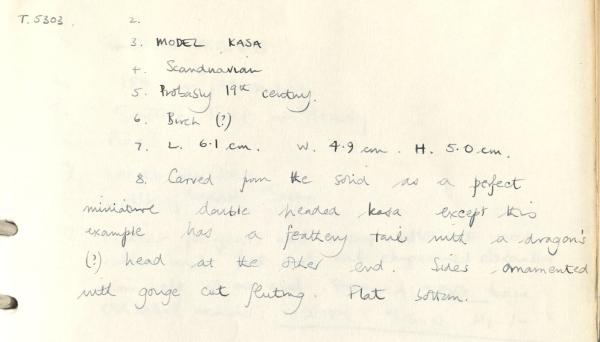 T.5303. 2.
3. MODEL KASA
4. Scandinavian
5. Probably 19th century.
6. Birch (?)
7. L. 6.1 cm. W. 4.9 cm. H. 5.0 cm.
8. Carved from the solid as a perfect
miniature double headed kasa except this
example has a feathery tail with a dragon's
(?) head at the other end. Sides ornamented
with gouge cut fluting. Flat bottom.